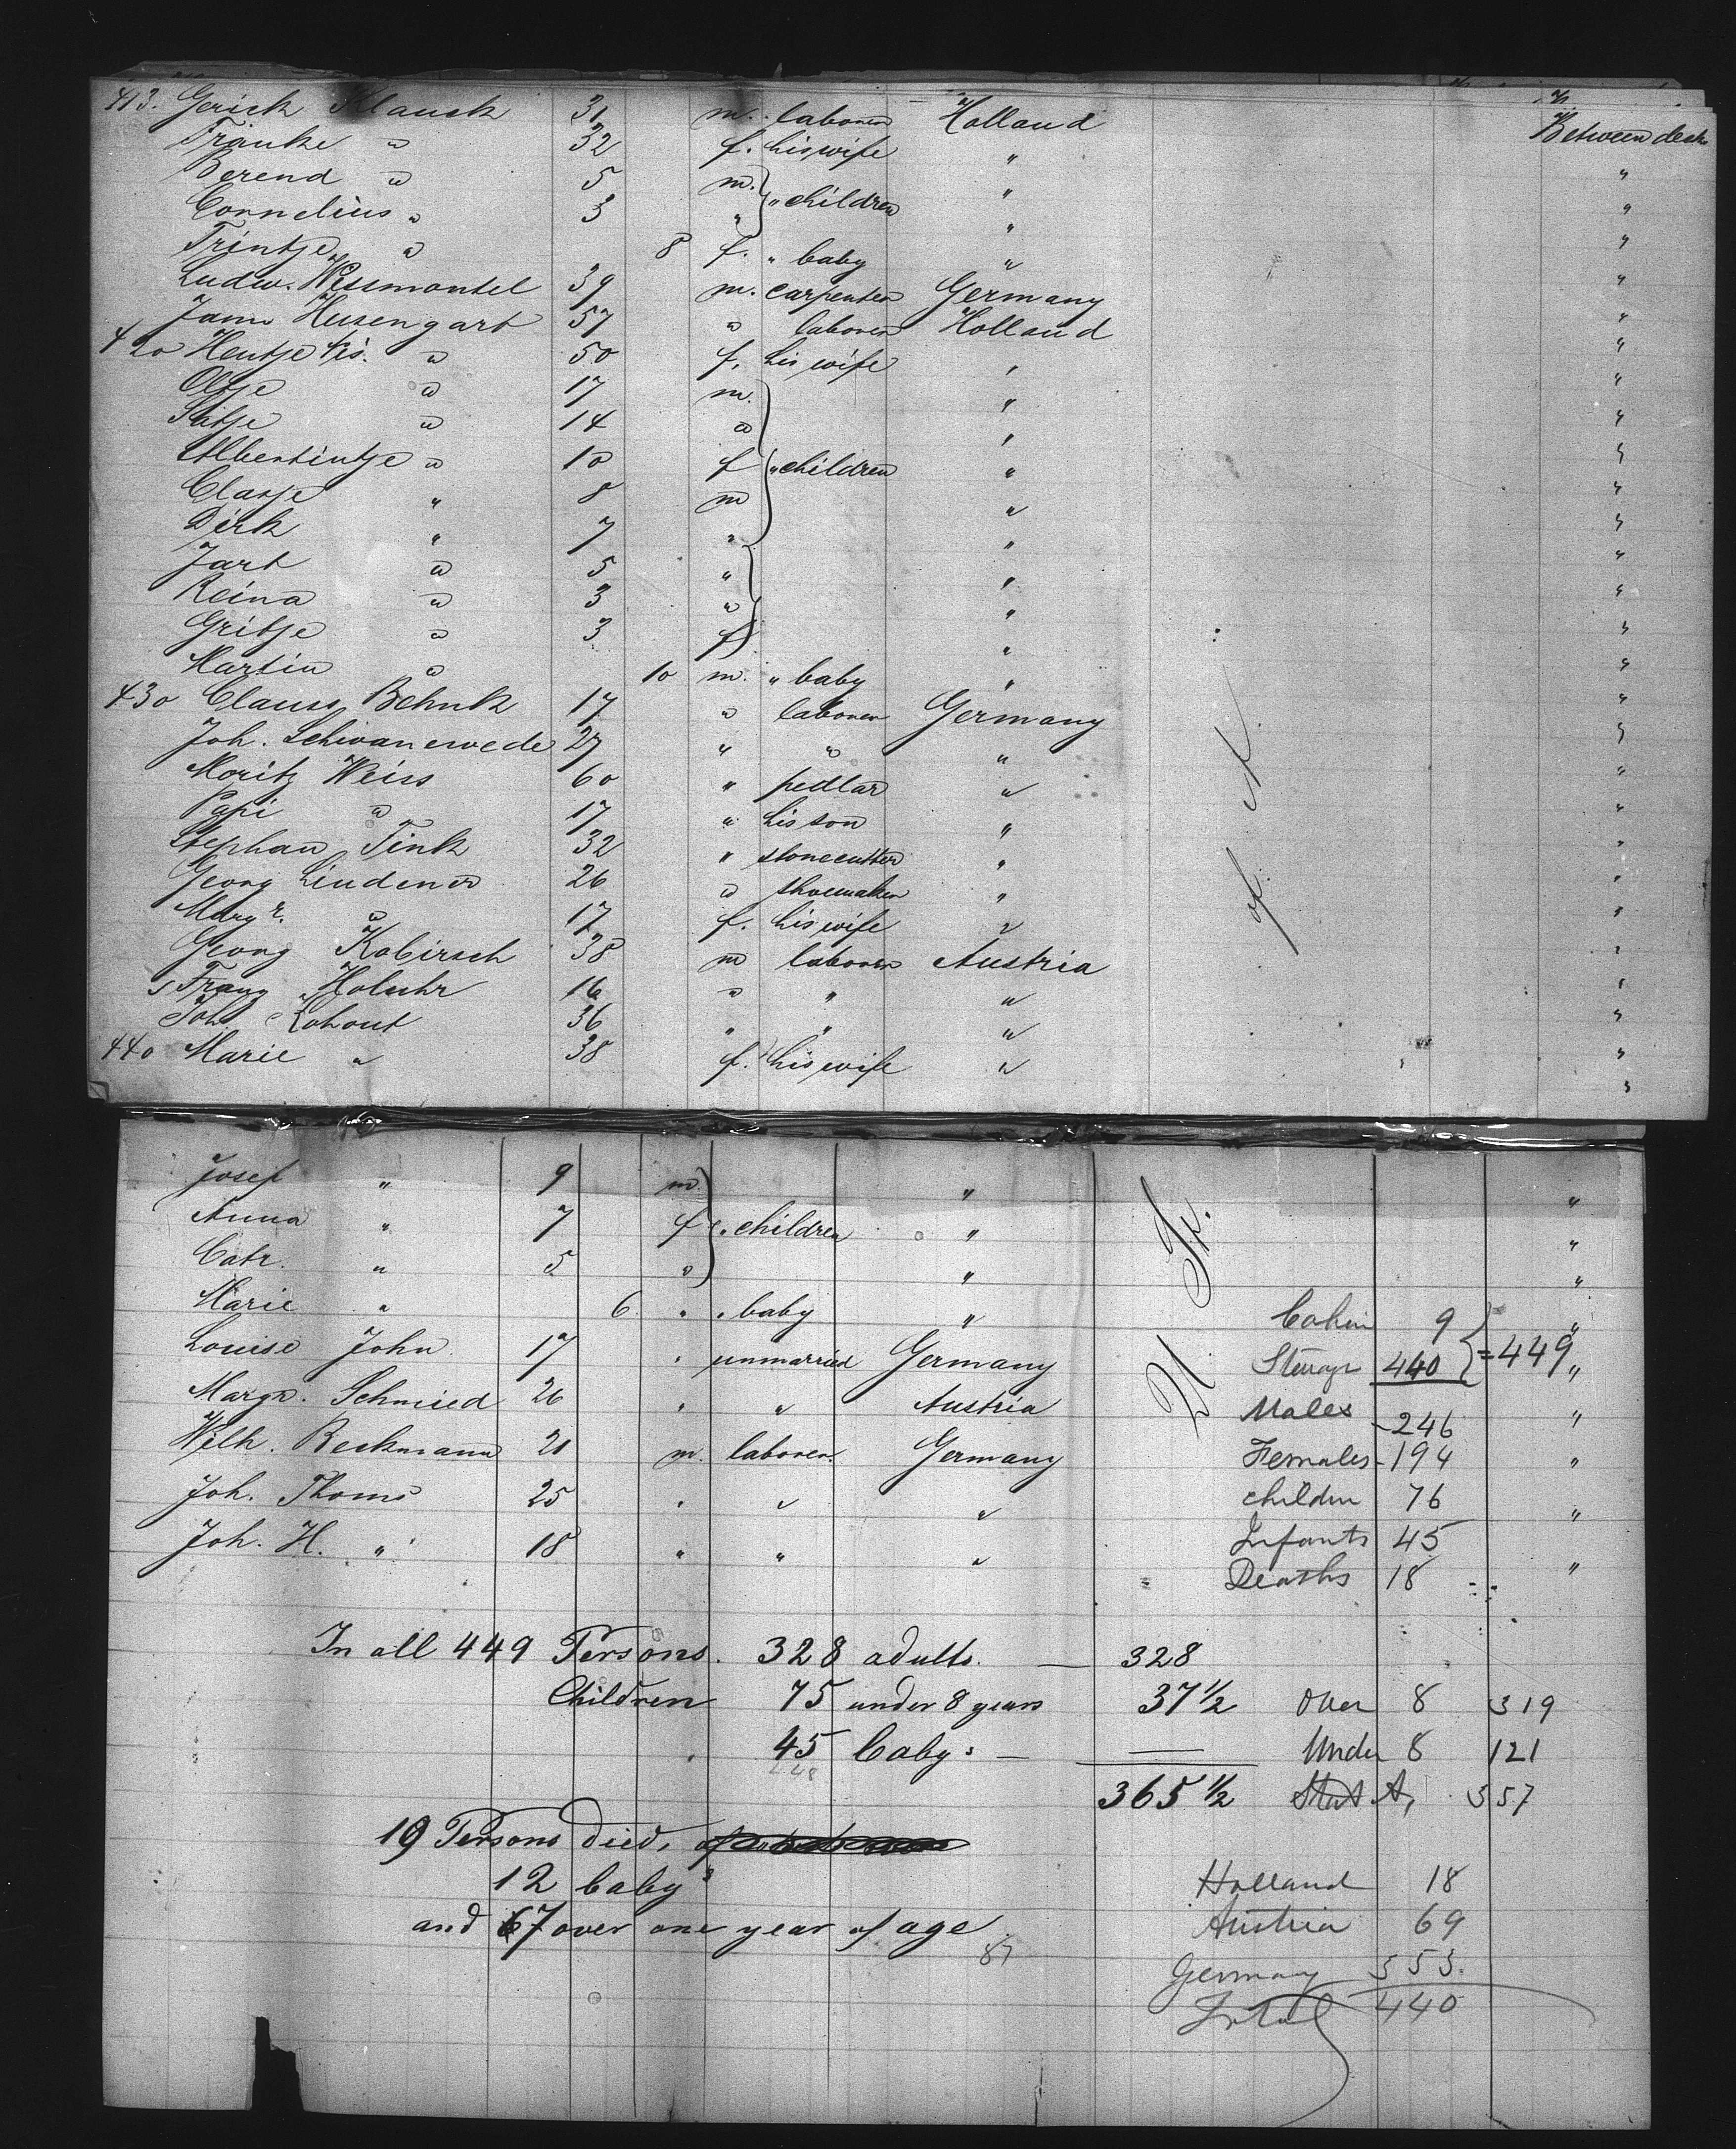 413. Gerick Klauck 31 m. laborer Holland Between deck
Trauke " 32 f. his wife " "
Berend " 5 m. " children " "
Cornelius " 3 " " "
Trintje " 8 f. " baby " "
Ludw. Wessmantel 39 m. carpenter Germany "
Jann Husengart 57 " laborer Holland "
420 Hentje " 50 f. his wife " "
Oltje " 17 m. " "
Satje " 14 " " "
Albertintje " 10 f " children " "
Clasje " 8 m " "
Dirk " 7 " " "
Jart " 5 " " "
Reina " 3 " " "
Gritje " 3 f " "
Martin " 10 m. " baby " "
430 Clauss Behnk 17 " laborer Germany "
Joh. Schwanewede 27 " " " "
Moritz Weiss 60 " pedlar " "
Papi " 17 " his son " "
Stephan Fink 32 " stonecutter " "
Georg Lindener 26 " shoemaker " "
Margr. " 17 f. his wife " "
Georg Kobirsch 38 m laborer Austria "
Franz Holuhr 16 " " " "
Joh. Kohout 36 " " " "
440 Marie " 38 f. his wife " "
Josef " 9 m. " "
Anna " 7 f " children " "
Catr. " 5 " " "
Marie " 6 " " baby " "
Cabin 9
Louise John 17 " unmarried Germany "
Steerage 440 = 449
Margr. Schmied 26 " " Austria "
Males 246
Wilh. Beckmann 21 m. laborer. Germany "
Females 194
Joh. Thoms 25 " " " "
Children 76
Joh. H. " 18 " " " "
Infants 45
Deaths 18
In all 449 Persons. 328 adults. — 328
Children 75 under 8 years 37 1/2 Over 8 319
45 baby's — — Under 8 121
365 1/2 Stat A, 357
19 Persons died,
12 baby's
and 7 over one year of age
87
Holland 18
Austria 69
Germany 353.
Total 440